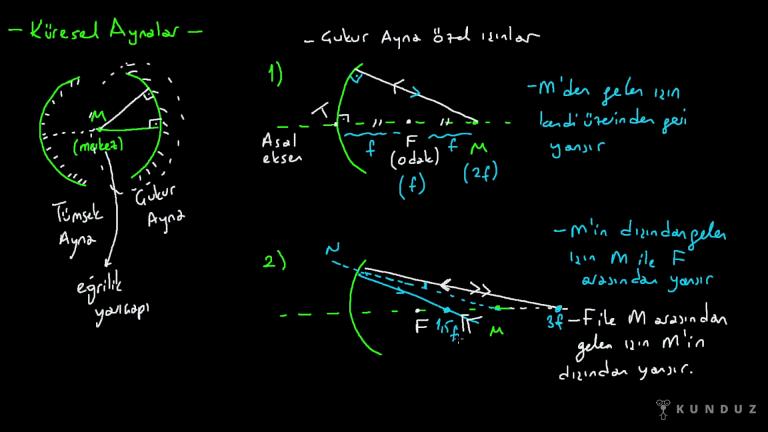 - Küresel Aynalar -
M
(merkez)
Tümsek
Ayna
Çukur
Ayna
eğrilik
yarıçapı
- Çukur Ayna özel ışınlar
1)
T
Asal
eksen
f
F
(odak)
(f)
f
M
(2f)
- M'den gelen ışın
kendi üzerinden geri
yansır
2)
N
F
1,5f
M
3f
- M'in dışından gelen
ışın M ile F
arasından yansır
- F ile M arasından
gelen ışın M'in
dışından yansır.
KUNDUZ